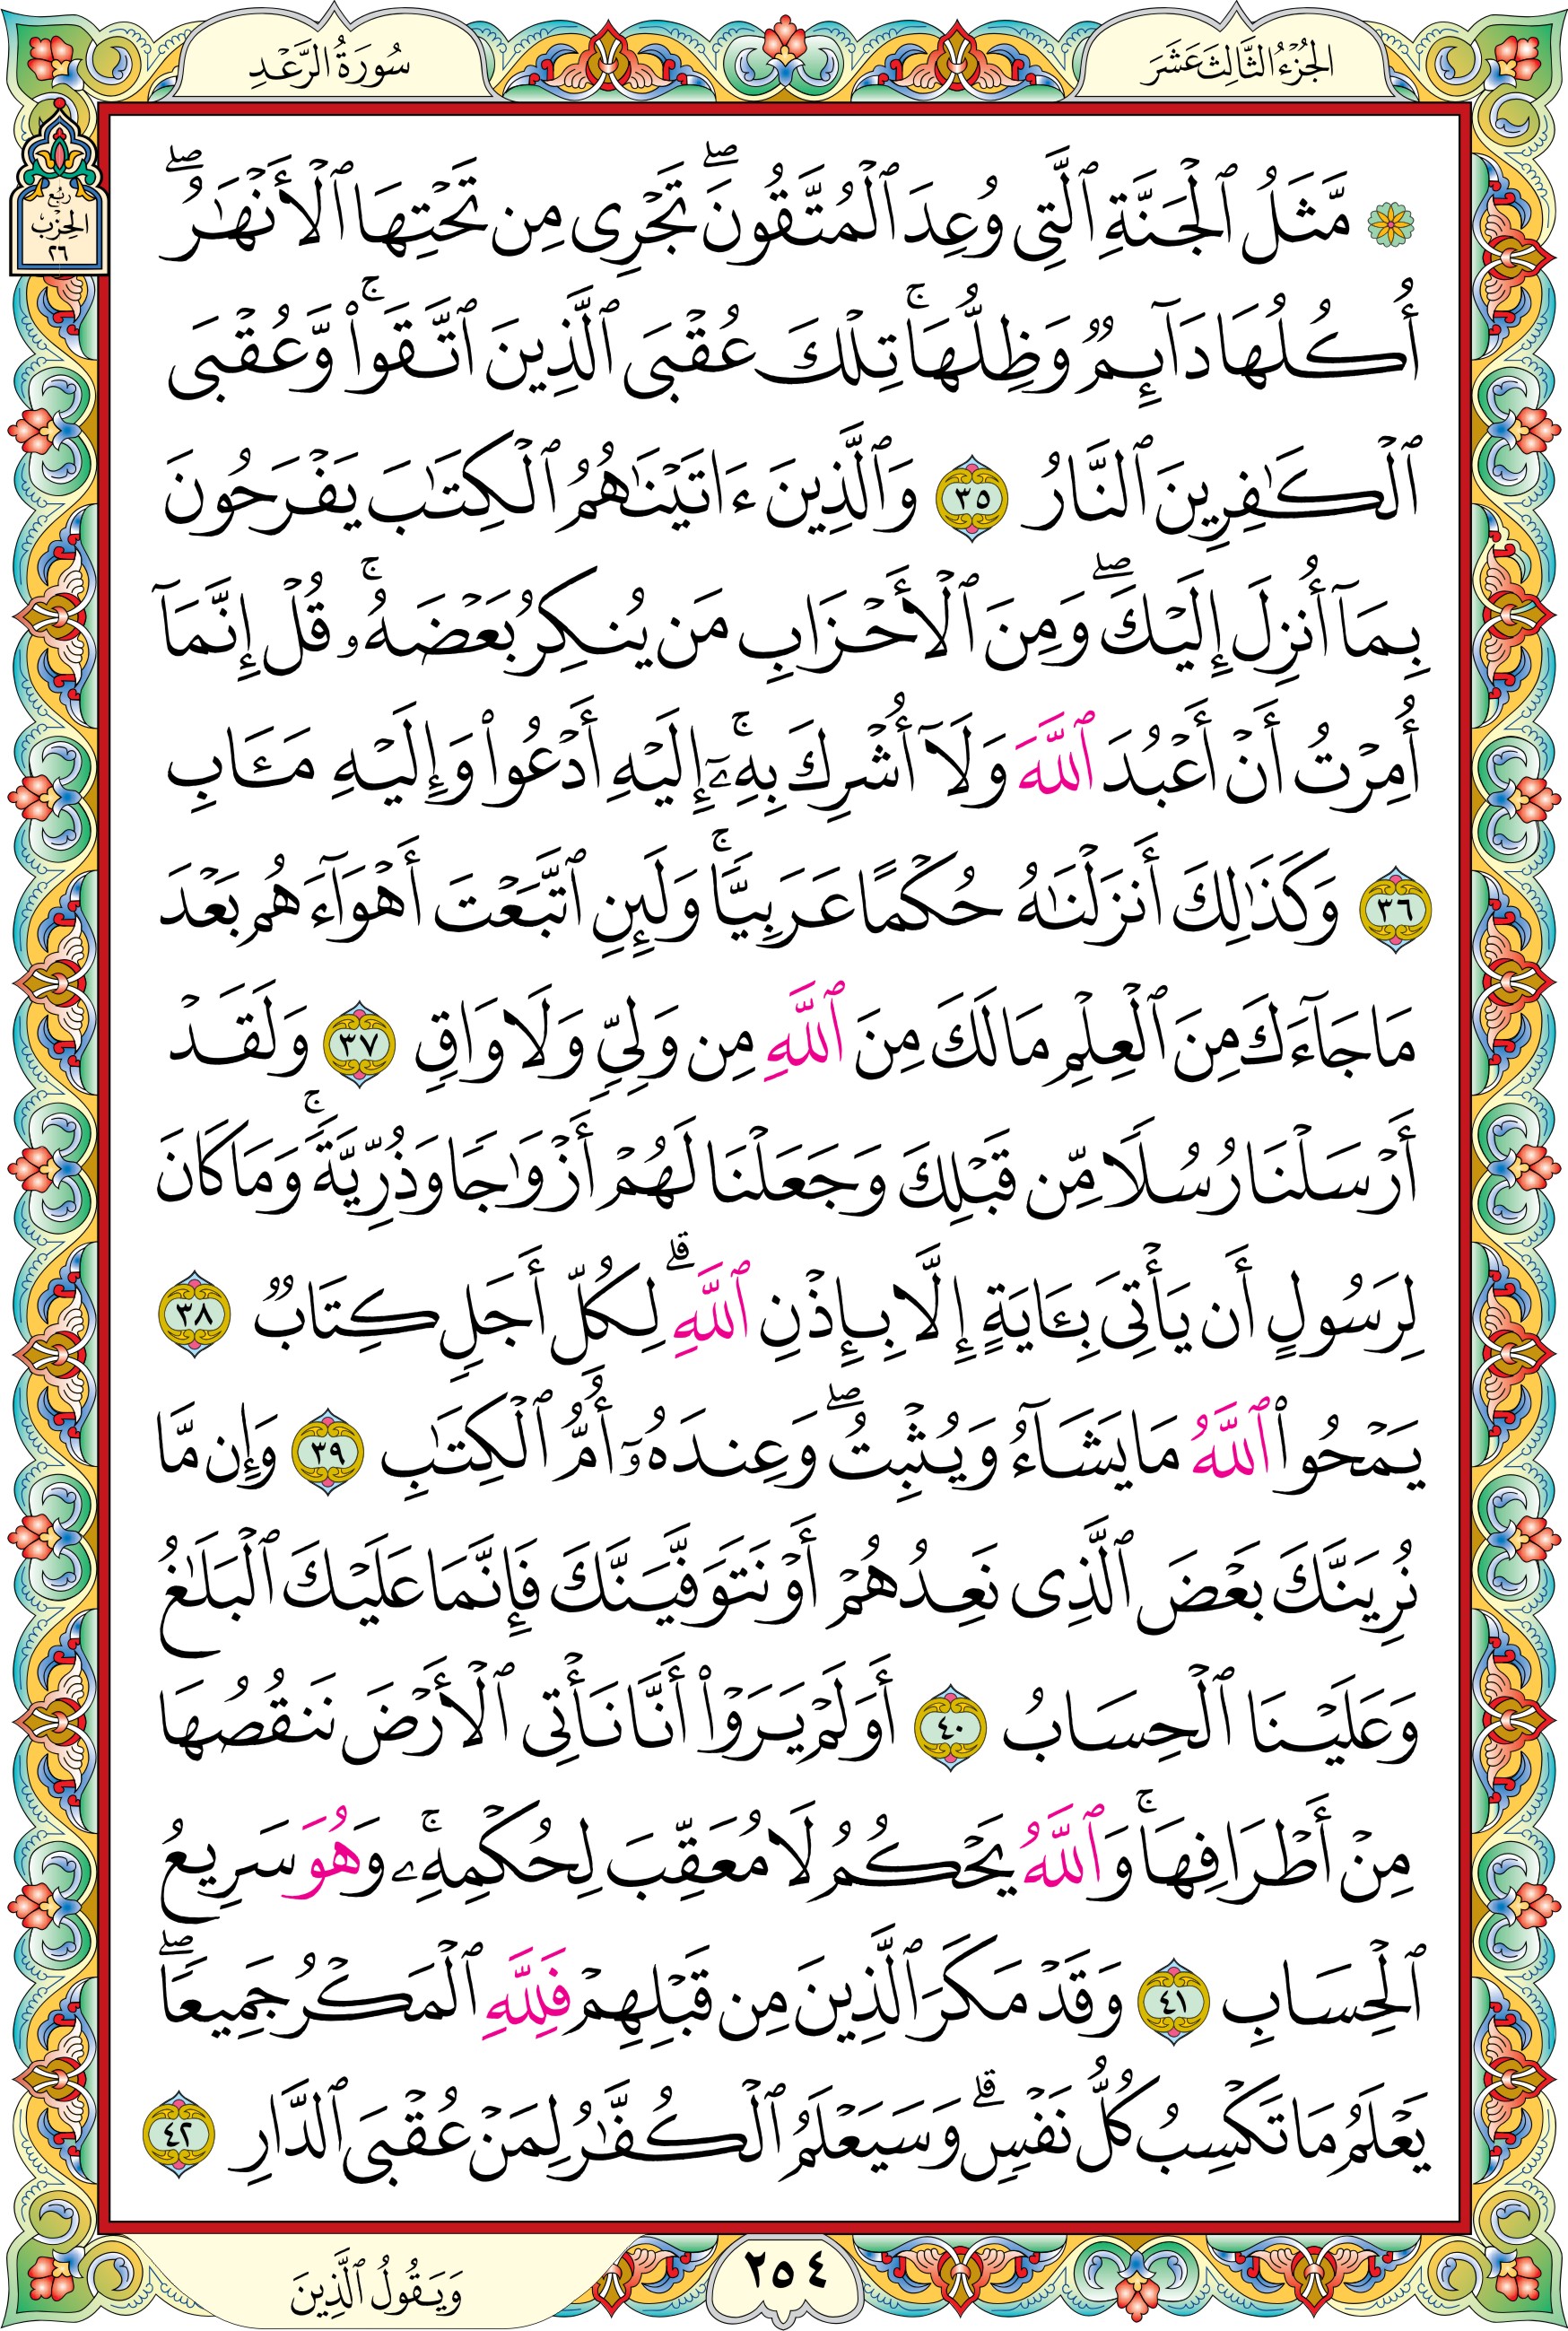 الجُزْءُ الثَّالِثَ عَشَرَ
سُورَةُ الرَّعْدِ
رُبع
الحِزْب
٢٦
۞ مَّثَلُ ٱلْجَنَّةِ ٱلَّتِى وُعِدَ ٱلْمُتَّقُونَ ۖ تَجْرِى مِن تَحْتِهَا ٱلْأَنْهَـٰرُ ۖ
أُكُلُهَا دَآئِمٌ وَظِلُّهَا ۚ تِلْكَ عُقْبَى ٱلَّذِينَ ٱتَّقَوا۟ ۚ وَّعُقْبَى
ٱلْكَـٰفِرِينَ ٱلنَّارُ ٣٥ وَٱلَّذِينَ ءَاتَيْنَـٰهُمُ ٱلْكِتَـٰبَ يَفْرَحُونَ
بِمَآ أُنزِلَ إِلَيْكَ ۖ وَمِنَ ٱلْأَحْزَابِ مَن يُنكِرُ بَعْضَهُۥ ۚ قُلْ إِنَّمَآ
أُمِرْتُ أَنْ أَعْبُدَ ٱللَّهَ وَلَآ أُشْرِكَ بِهِۦٓ ۚ إِلَيْهِ أَدْعُوا۟ وَإِلَيْهِ مَـَٔابِ
٣٦ وَكَذَٰلِكَ أَنزَلْنَـٰهُ حُكْمًا عَرَبِيًّا ۚ وَلَئِنِ ٱتَّبَعْتَ أَهْوَآءَهُم بَعْدَ
مَا جَآءَكَ مِنَ ٱلْعِلْمِ مَا لَكَ مِنَ ٱللَّهِ مِن وَلِىٍّ وَلَا وَاقٍ ٣٧ وَلَقَدْ
أَرْسَلْنَا رُسُلًا مِّن قَبْلِكَ وَجَعَلْنَا لَهُمْ أَزْوَٰجًا وَذُرِّيَّةً ۚ وَمَا كَانَ
لِرَسُولٍ أَن يَأْتِىَ بِـَٔايَةٍ إِلَّا بِإِذْنِ ٱللَّهِ ۗ لِكُلِّ أَجَلٍ كِتَابٌ ٣٨
يَمْحُوا۟ ٱللَّهُ مَا يَشَآءُ وَيُثْبِتُ ۖ وَعِندَهُۥٓ أُمُّ ٱلْكِتَـٰبِ ٣٩ وَإِن مَّا
نُرِيَنَّكَ بَعْضَ ٱلَّذِى نَعِدُهُمْ أَوْ نَتَوَفَّيَنَّكَ فَإِنَّمَا عَلَيْكَ ٱلْبَلَـٰغُ
وَعَلَيْنَا ٱلْحِسَابُ ٤٠ أَوَلَمْ يَرَوْا۟ أَنَّا نَأْتِى ٱلْأَرْضَ نَنقُصُهَا
مِنْ أَطْرَافِهَا ۚ وَٱللَّهُ يَحْكُمُ لَا مُعَقِّبَ لِحُكْمِهِۦ ۚ وَهُوَ سَرِيعُ
ٱلْحِسَابِ ٤١ وَقَدْ مَكَرَ ٱلَّذِينَ مِن قَبْلِهِمْ فَلِلَّهِ ٱلْمَكْرُ جَمِيعًا ۖ
يَعْلَمُ مَا تَكْسِبُ كُلُّ نَفْسٍ ۗ وَسَيَعْلَمُ ٱلْكُفَّـٰرُ لِمَنْ عُقْبَى ٱلدَّارِ ٤٢
٢٥٤
وَيَقُولُ ٱلَّذِينَ